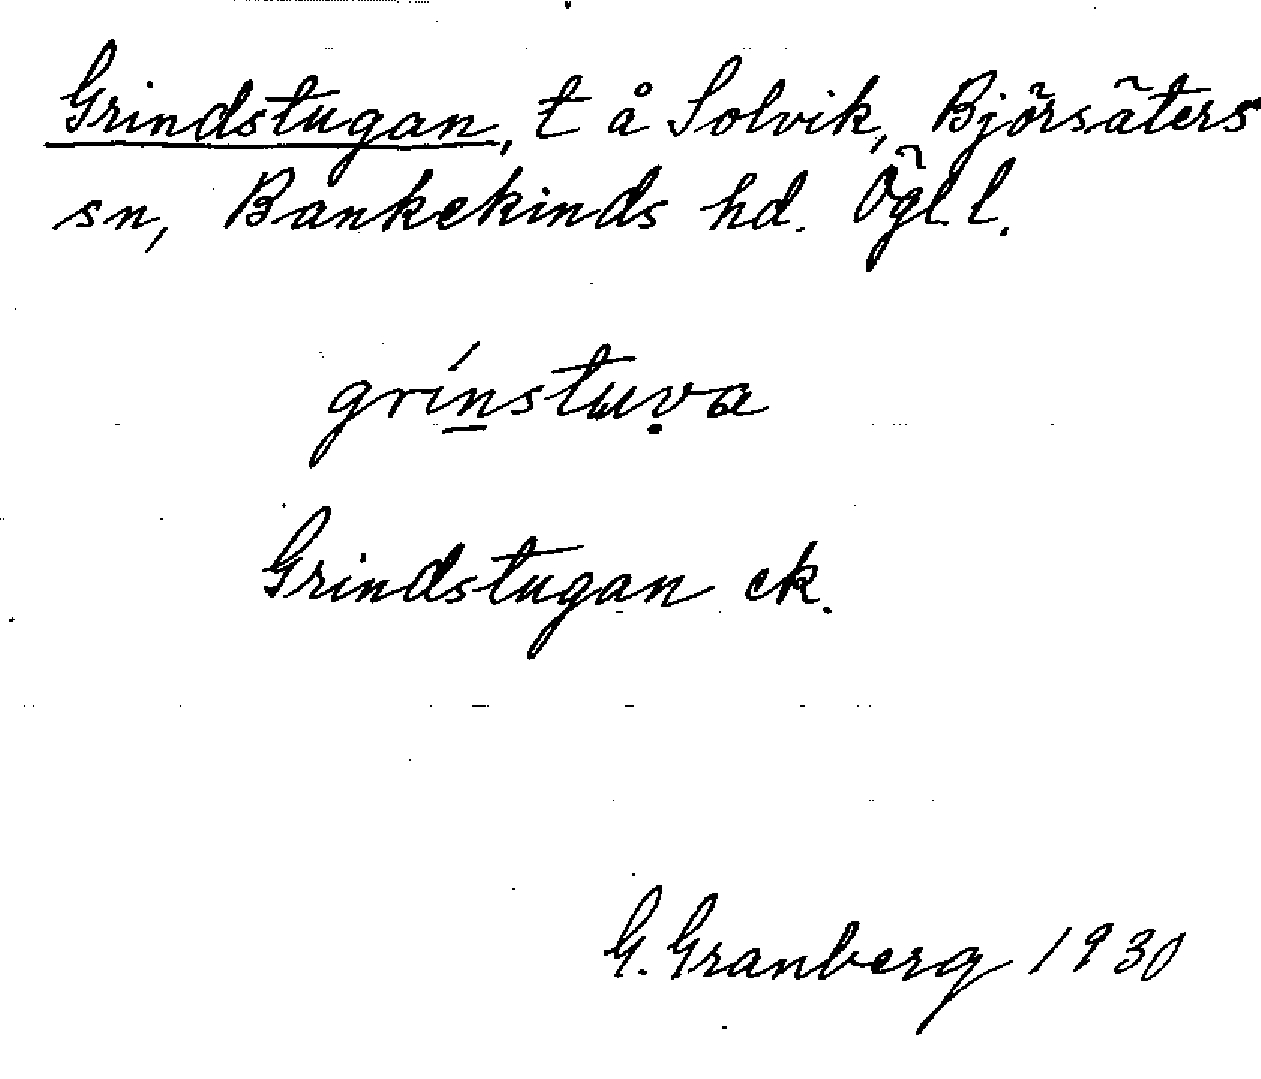 Grindstugan, t å Solvik, Björsäters
sn, Bankekinds hd. Ögl l.
grínstuva
Grindstugan ek.
G. Granberg 1930